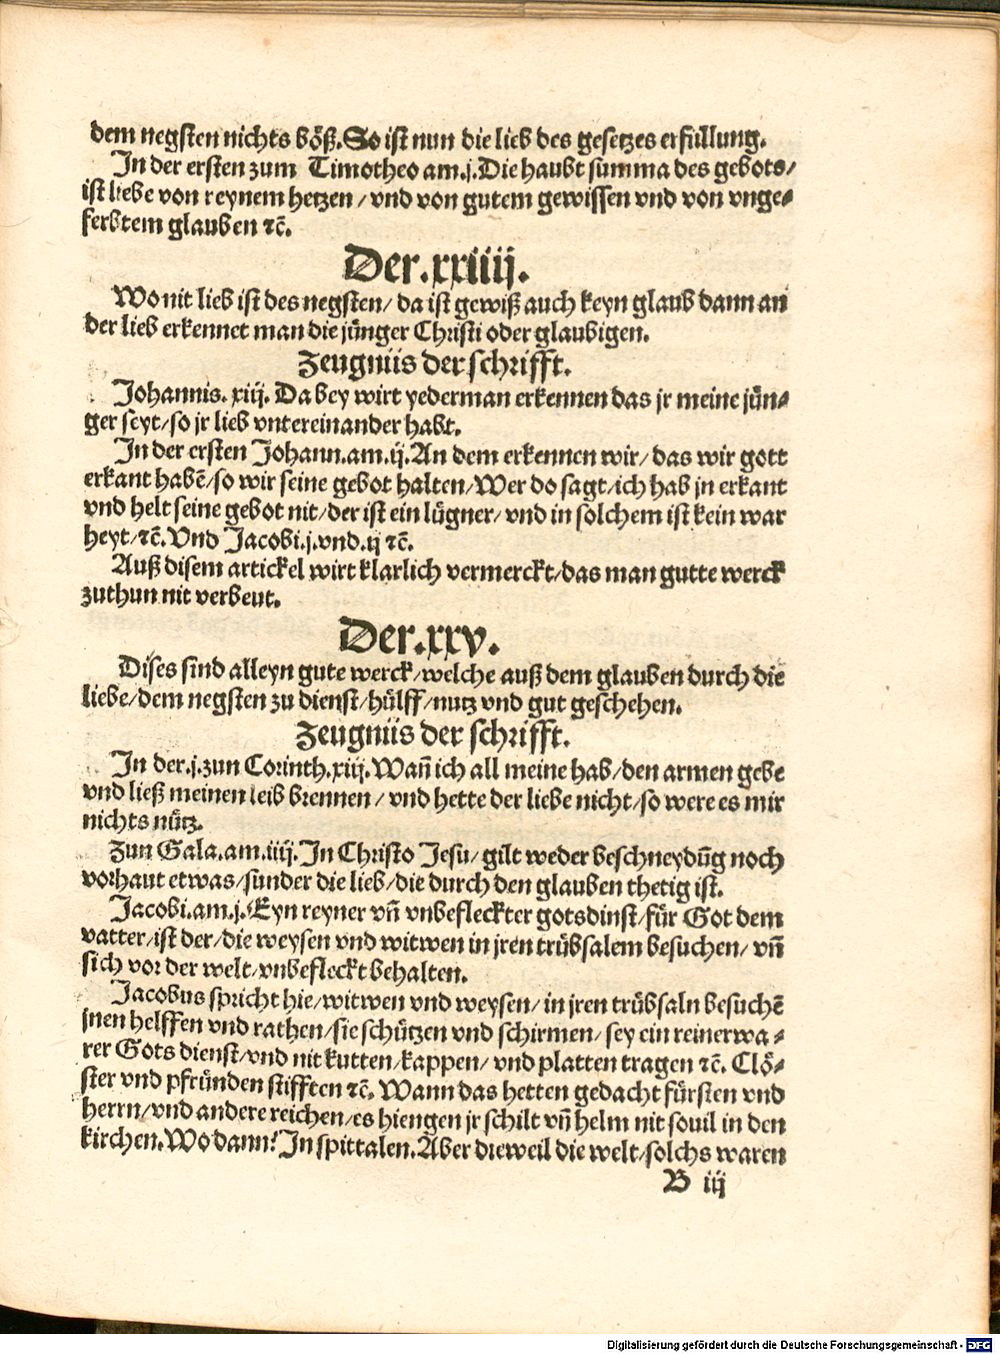 dem negsten nichts böß. So ist nun die lieb des gesetzes erfüllung.
In der ersten zum Timotheo am.j. Die haubt summa des gebots/
ist liebe von reynem hertzen / vnd von gutem gewissen vnd von vnge-
ferbtem glauben ꝛc̃.
Der.xxiiij.
Wo nit lieb ist des negsten/ da ist gewiß auch keyn glaub dann an
der lieb erkennet man die jünger Christi oder glaubigen.
Zeugniis der schrifft.
Johannis. xiij. Da bey wirt yederman erkennen das jr meine jün-
ger seyt/so jr lieb vntereinander habt.
In der ersten Johann.am.ij. An dem erkennen wir/ das wir gott
erkant habẽ/so wir seine gebot halten/Wer do sagt/ich hab jn erkant
vnd helt seine gebot nit/der ist ein lügner/ vnd in solchem ist kein war
heyt/ꝛc̃. Vnd Jacobi.j.vnd.ij ꝛc̃.
Auß disem artickel wirt klarlich vermerckt/das man gutte werck
zuthun nit verbeut.
Der.xxv.
Dises sind alleyn gute werck/welche auß dem glauben durch die
liebe/dem negsten zu dienst/hülff/nutz vnd gut geschehen.
Zeugniis der schrifft.
In der.j.zun Corinth.xiij. Wañ ich all meine hab/den armen gebe
vnd ließ meinen leib brennen / vnd hette der liebe nicht/so were es mir
nichts nütz.
Zun Gala.am.iiij. In Christo Jesu/ gilt weder beschneydũg noch
vorhaut etwas/sunder die lieb/die durch den glauben thetig ist.
Jacobi.am.j. Eyn reyner vñ vnbefleckter gotsdinst/für Got dem
vatter/ist der/die weysen vnd witwen in jren trübsalem besuchen/ vñ
sich vor der welt/vnbefleckt behalten.
Jacobus spricht hie/witwen vnd weysen/ in jren trübsaln besuchẽ
jnen helffen vnd rathen/sie schützen vnd schirmen/ sey ein reinerwa-
rer Gots dienst/vnd nit kutten/kappen/ vnd platten tragen ꝛc̃. Clö-
ster vnd pfründen stifften ꝛc̃. Wann das hetten gedacht fürsten vnd
herrn/vnd andere reichen/es hiengen jr schilt vñ helm nit souil in den
kirchen. Wo dann? In spittalen. Aber dieweil die welt/solchs waren
B iij
Digitalisierung gefördert durch die Deutsche Forschungsgemeinschaft - DFG